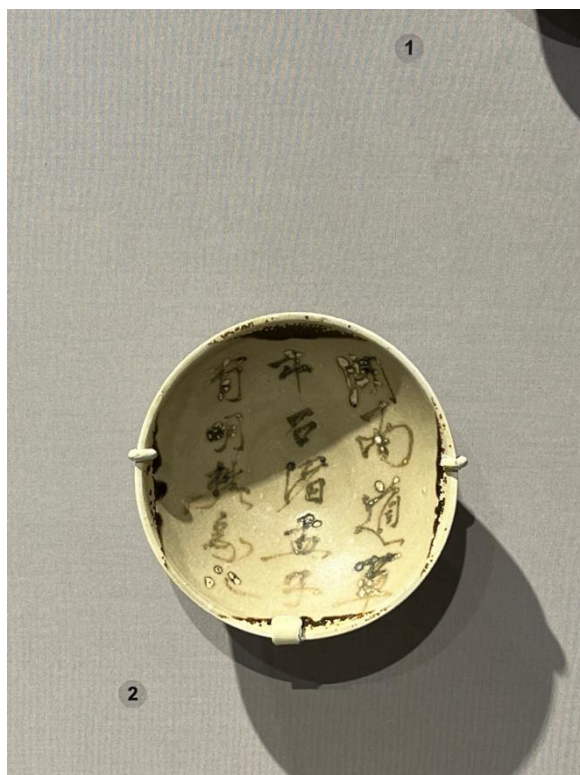 1
湖南道草
市石渚盂子
有明樊家記
2